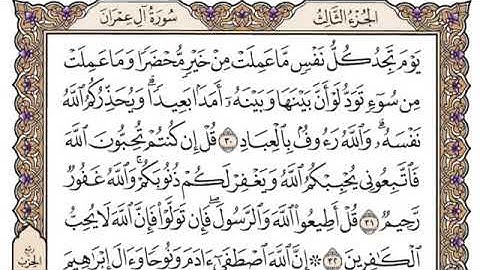 الجزء الثالث
سورة آل عمران
يَوْمَ تَجِدُ كُلُّ نَفْسٍ مَّا عَمِلَتْ مِنْ خَيْرٍ مُّحْضَرًا وَمَا عَمِلَتْ
مِن سُوٓءٍ تَوَدُّ لَوْ أَنَّ بَيْنَهَا وَبَيْنَهُۥٓ أَمَدًۢا بَعِيدًا ۗ وَيُحَذِّرُكُمُ ٱللَّهُ
نَفْسَهُۥ ۗ وَٱللَّهُ رَءُوفٌۢ بِٱلْعِبَادِ ٣٠ قُلْ إِن كُنتُمْ تُحِبُّونَ ٱللَّهَ
فَٱتَّبِعُونِى يُحْبِبْكُمُ ٱللَّهُ وَيَغْفِرْ لَكُمْ ذُنُوبَكُمْ ۗ وَٱللَّهُ غَفُورٌ
رَّحِيمٌ ٣١ قُلْ أَطِيعُوا۟ ٱللَّهَ وَٱلرَّسُولَ ۖ فَإِن تَوَلَّوْا۟ فَإِنَّ ٱللَّهَ لَا يُحِبُّ
ٱلْكَٰفِرِينَ ٣٢ ۞ إِنَّ ٱللَّهَ ٱصْطَفَىٰٓ ءَادَمَ وَنُوحًا وَءَالَ إِبْرَٰهِيمَ
ربع
الحزب